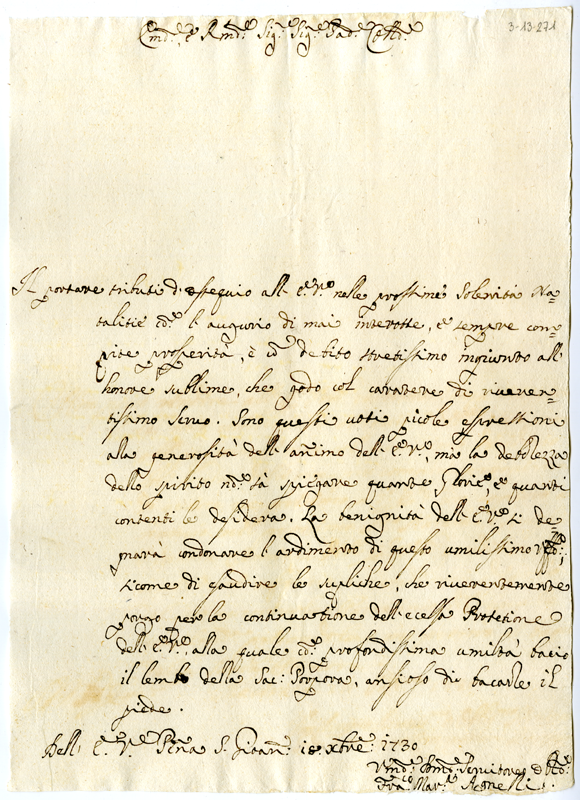 3-13-271
Emō: e Rmō: Sig:re Sig:re Pad:ne Col:mo
Il portare tributi d'ossequio all'E:V: nelle prossime Solenità Na=
talitie cō: l'augurio di mai interotte, e sempre com=
pite prosperità, è cō: debito stretissimo ingiunto all'
honore sublime, che godo col caratere di riveren=
tissimo servo. Sono questi voti picole espressioni
alla generosità dell'animo dell'E:V:, mà la debolezza
dello spirito nō: sà spiegare quante Glorie, e quanti
contenti le desidera. La benignità dell'E:V: si de=
gnarà condonare l'ardimento di questo umilissimo
sicome di gaudire le supliche, che riverentemente
porgo per la continuatione dell'ecelsa Protetione
dell'E:V:, alla quale cō: profondissima umiltà bacio
il lembo della Sac: Porpora, ansioso di baciarle il
piede.
Dell'E:V: S: Giovan: 18 Xbre: 1730
Umō: Servitore
Fra: Mar: Agnelli